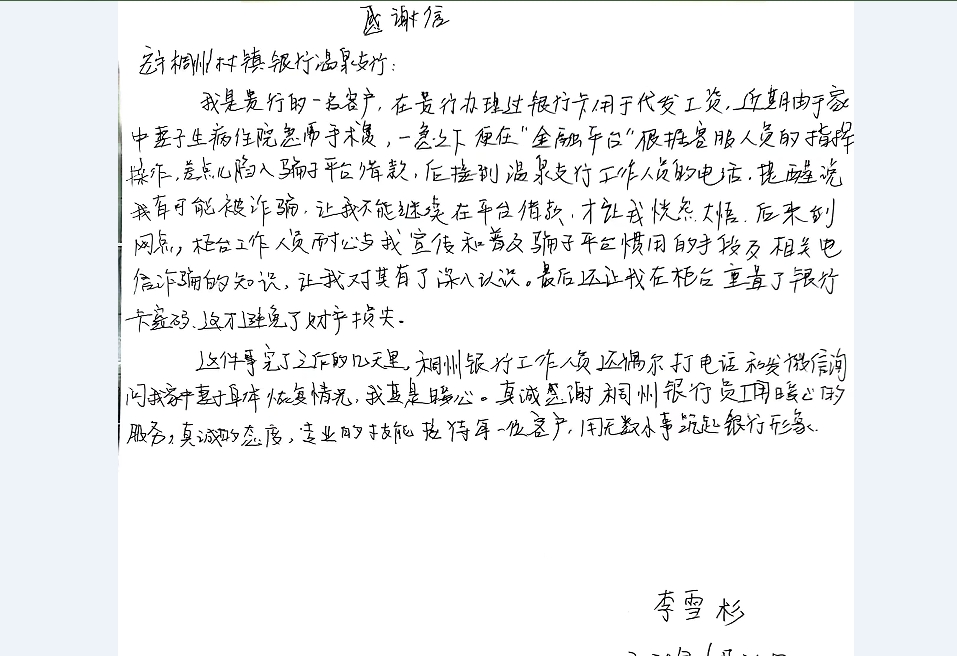 感谢信
稠州村镇银行温泉支行:
我是贵行的一名客户,在贵行办理过银行卡用于代发工资,近期由于家
中妻子生病住院急需手术费,一急之下便在“金融平台”根据客服人员的指挥
操作,差点儿陷入骗子平台借款,后接到温泉支行工作人员的电话,提醒说
我有可能被诈骗,让我不能继续在平台借款,才让我恍然大悟.后来到
网点,柜台工作人员耐心与我宣传和普及骗子平台惯用的手段及相关电
信诈骗的知识,让我对其有了深入认识。最后还让我在柜台重置了银行
卡密码.这才避免了财产损失.
这件事完了之后的几天里,稠州银行工作人员还偶尔打电话和发微信询
问我家中妻子身体恢复情况,我真是暖心。真诚感谢稠州银行员工用暖心的
服务,真诚的态度,专业的技能接待每一位客户,用无数小事筑起银行形象.
李雪杉